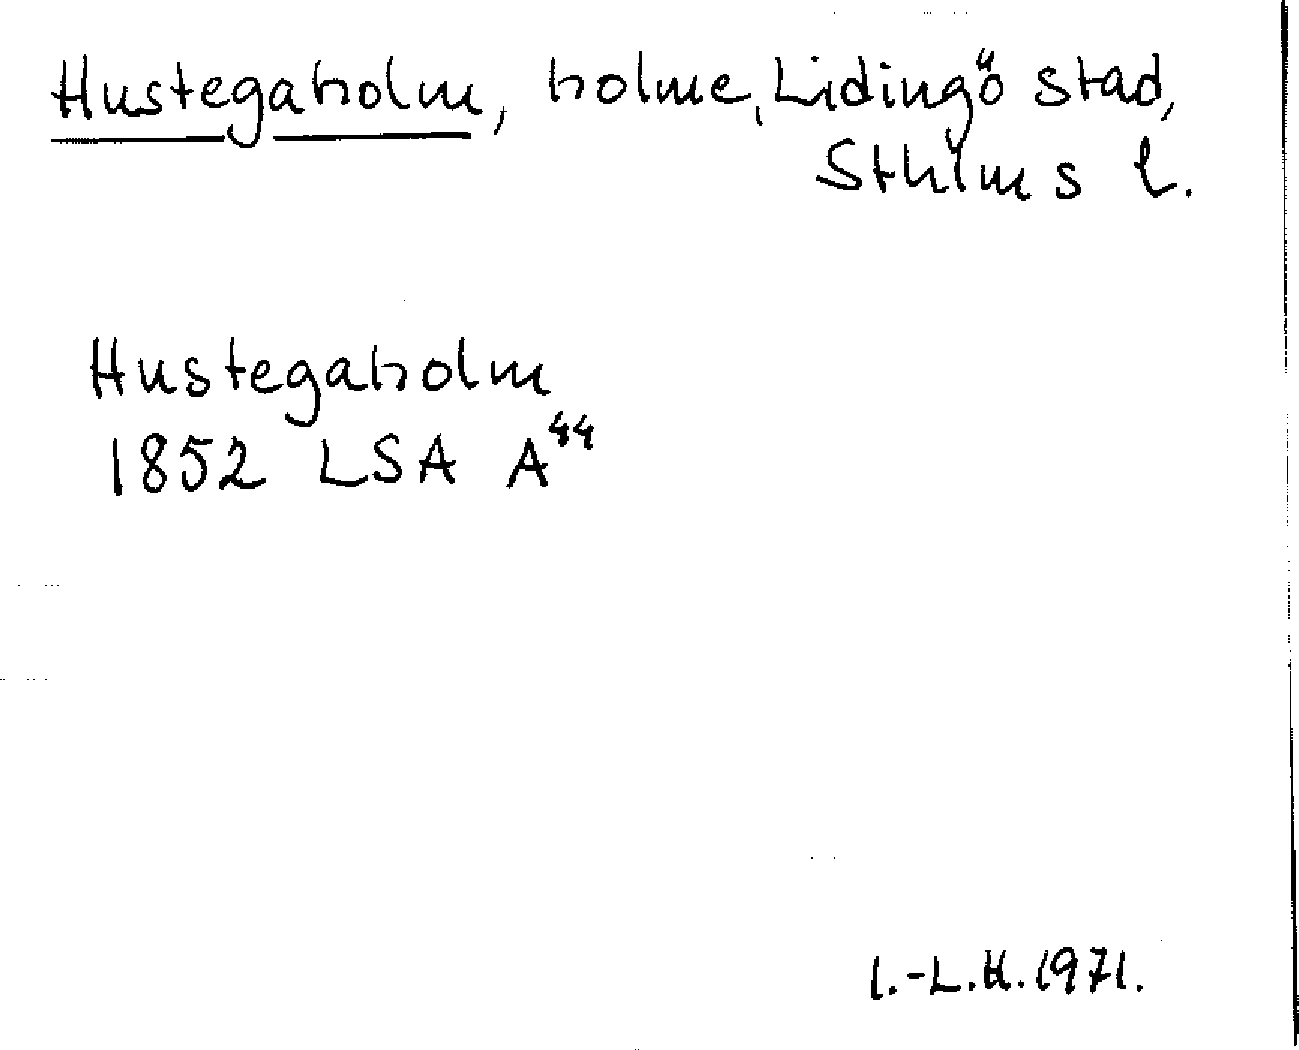 Hustegaholm, holme, Lidingö stad,
Sthlms l.
Hustegaholm
1852 LSA A44
I.-L.H. 1971.